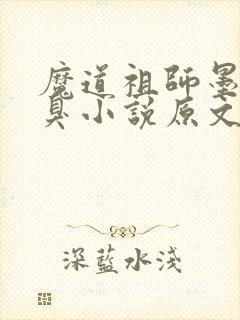 魔道祖師墨
臭小說原文
深藍水淺